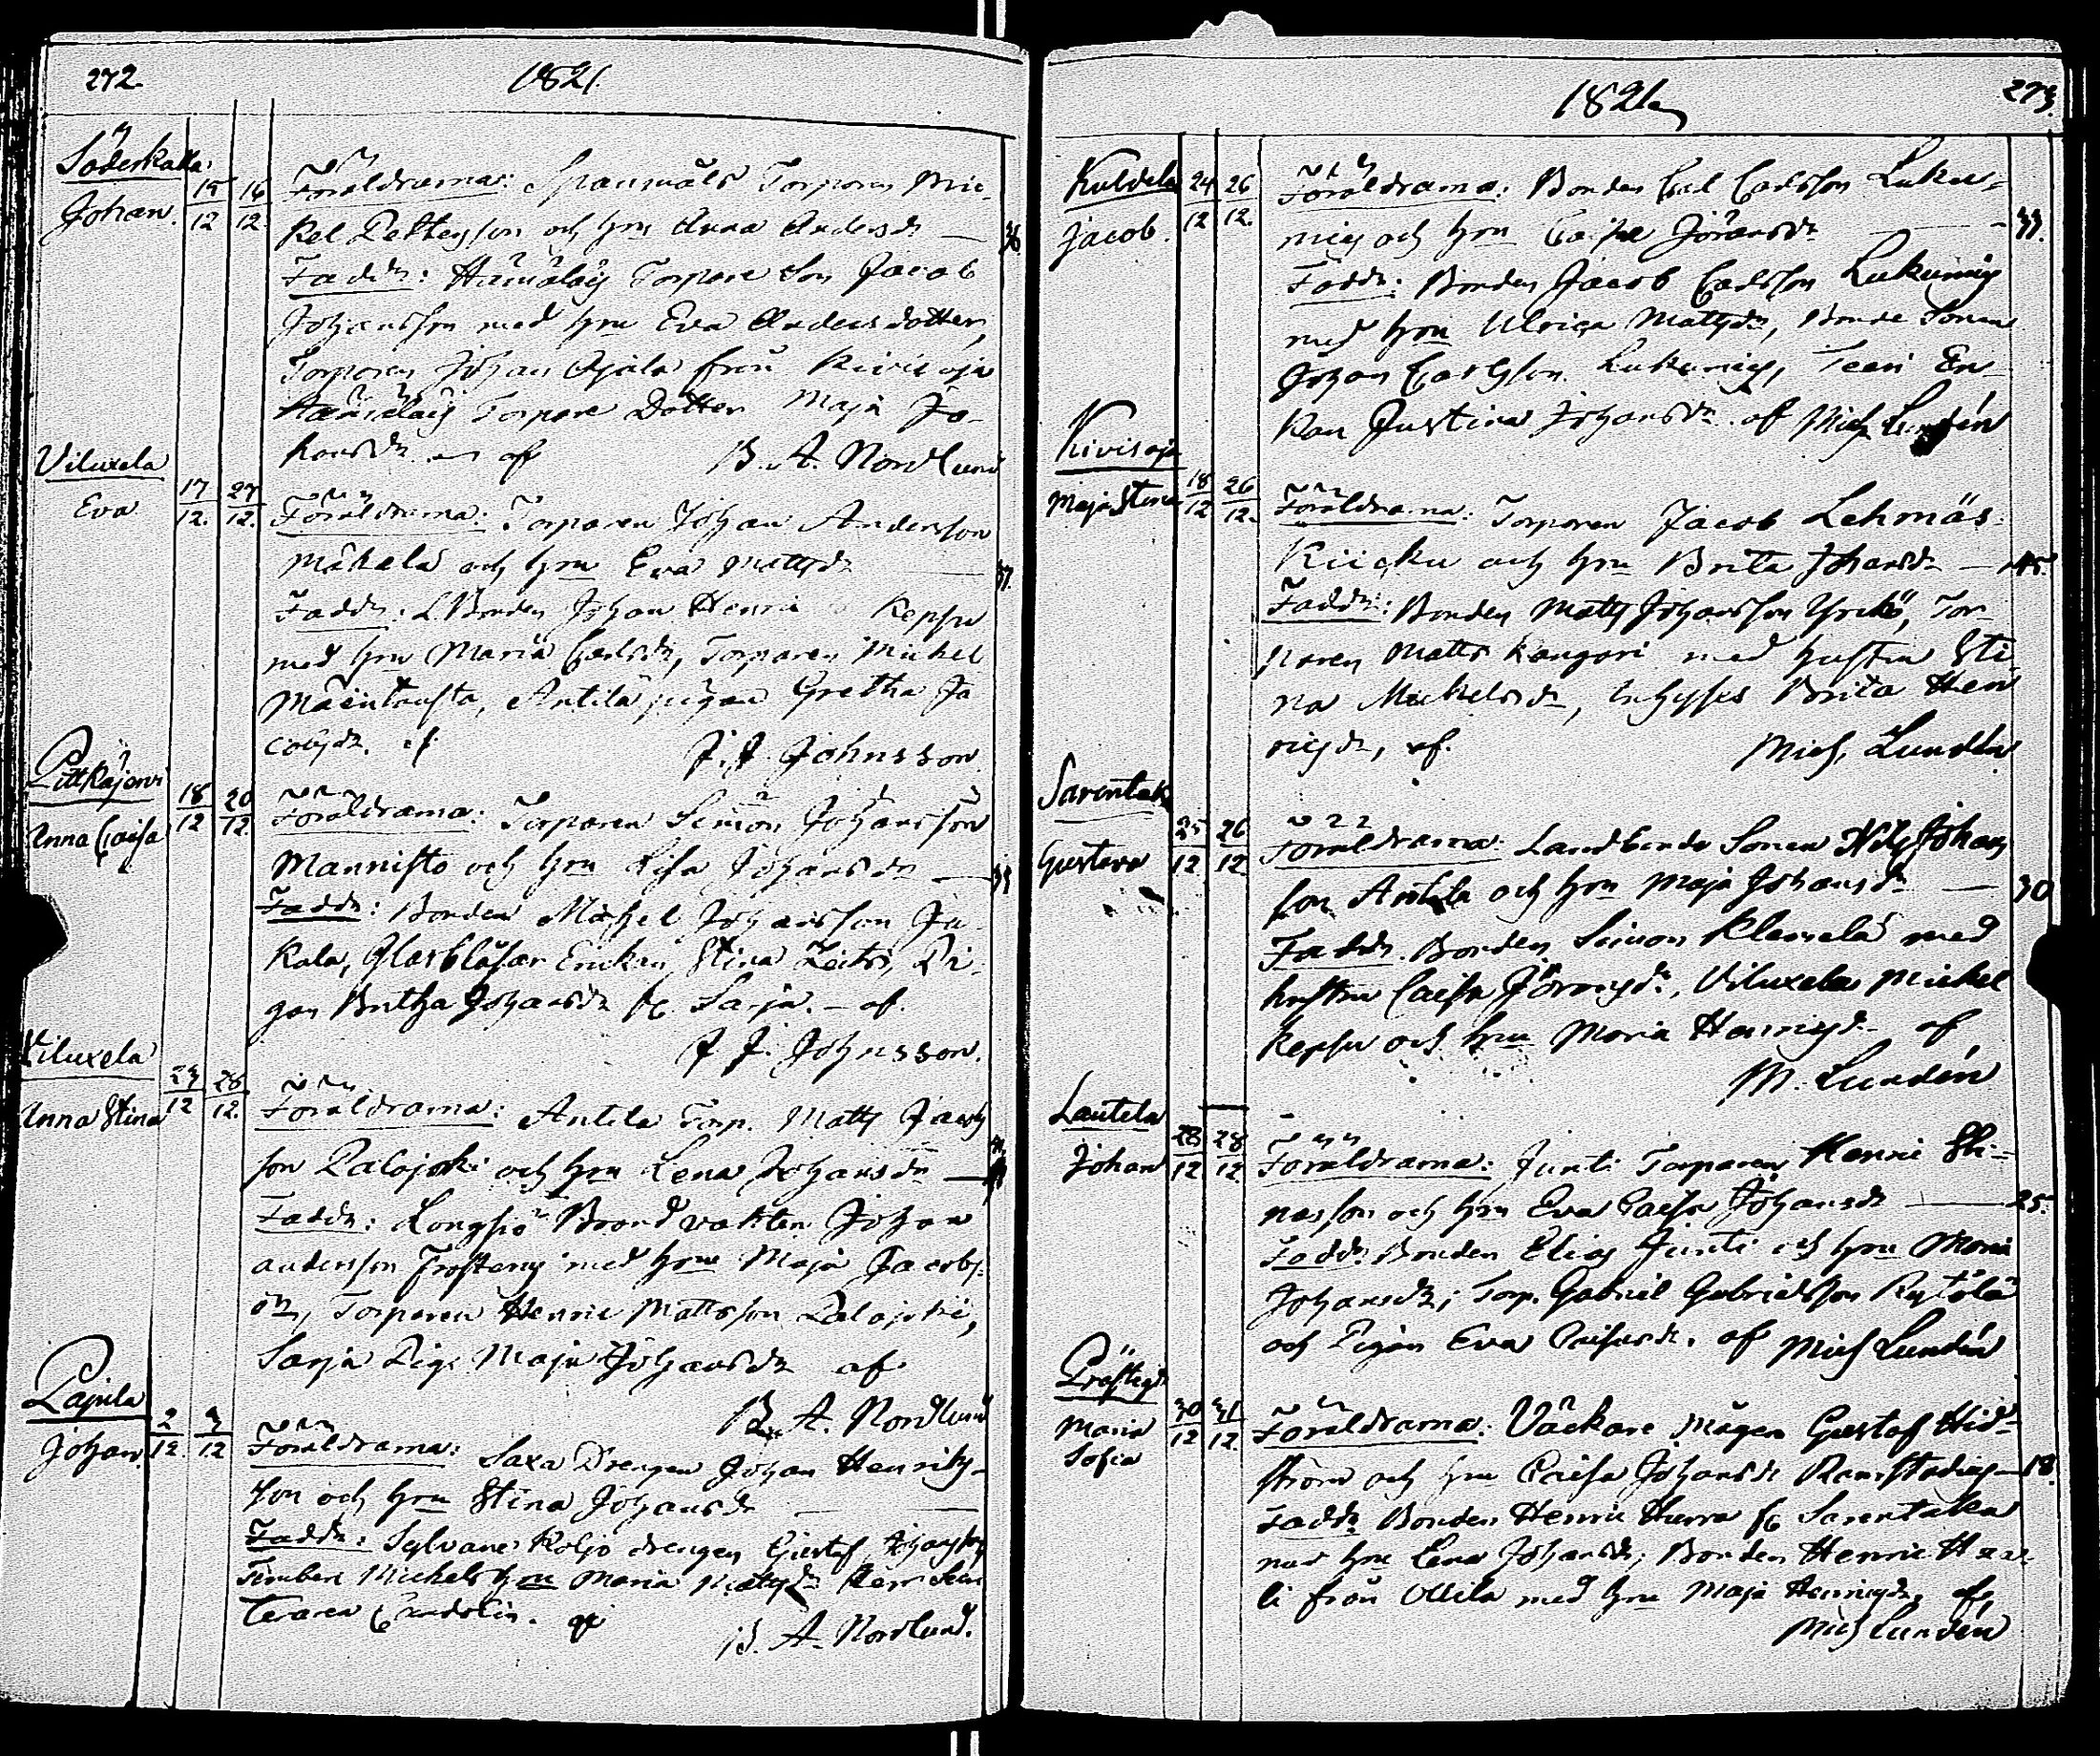 272.
1821.
Söderkalla
Johan. 15/12 16/12.
Föräldrarna: Spannnäls Torparen Mic-
kel Pettersson och hru Anna Andersdr — 36
Faddr: Hämäläis Torpare Son Jacob
Johansson med hru Eva Andersdotter,
Torparen Johan Ojala från Kivisoja
Hämäläis Torpare Dotter Maja Jo-
hansdr af B. A. Nordlund
Viluxela
Eva 17/12. 27/12.
Föräldrarna: Torparen Johan Andersson
Mäkelä och hru Eva Mattsdr — 37.
Faddr: L.Bonden Johan Henric Kepsu
med hru Maria Carlsdr, Torparen Mickel
Mäentausta, Antila pigan Gretha Ja
cobsdr. af J. J. Johnsson
Pitkäjervi
Anna Caisa 18/12 20/12
Föräldrarna: Torparen Simon Johansson
Mannisto och hru Lisa Johansdr —
Faddr: Bonden Michel Johansson Ja-
kala, Glasblåsar Enkan Stina Zeitri, Pi-
gan Britha Johansdr fr Sarja. – af.
J. J. Johnsson.
Viluxela
Anna Stina 23/12 26/12.
Föräldrarna: Antila Torp. Matts Jacobs
son Palojoki och hru Lena Johansdr —
Faddr: Longsjö Boond vakten Johan
andersson Frosterus med hru Maja Jacobs-
dr, Torparen Henric Mattsson Palojoki,
Sarja Pig. Maja Johansdr af
B. A. Nordlund
Pajula
Johan. 2/12. 3/12
Föräldrarna: Saxa Drengen Johan Henrics-
son och hru Stina Johansdr —
Faddr: Sylvane Koljo drengen Gustaf Johansson
Timberm Mickels hru Maria Mattsdr Herr Stu
teraren Candolin. af B. A. Nordlund.
1821
273.
Kuldela
Jacob. 24/12 26/12.
Föräldrarna: Bonden Carl Carlsson Luku-
mies och hru Caisa Jöransdr — 33.
Faddr: Bonden Jacob Carlsson Lukumies
med hru Ulrica Mattsdr, Bonde Sonen
Johan Carlsson Lukumies, Teeri En-
kan Justina Johansdr. af Mich Lundén
Kivisoja
Maja Stina 18/12 26/12.
Föräldrarna: Torparen Jacob Lehmäs
Kiicku och hru Brita Johansdr — 45.
Faddr: Bonden Matts Johansson Yrckö, Tor-
paren Matts Kangari med hustru Sti
na Mickelsdr, Inhyses Brita Hen
ricsdr, af. Mich. Lundén
Sarentaka
Gustava 25/12 26/12
Föräldrarna: Landbonde Sonen Nils Johans
son Antila och hru Maja Johansdr — 30
Faddr. Bonden Simon Klemelä med
hustru Caisa Jöransdr, Viluxela Mickel
Kepsu och hru Maria Henricsdr af
M. Lundén
Lautela
Johan 28/12 28/12
Föräldrarna: Junti Torparen Henric Eli-
nasson och hru Eva Caisa Johansdr — 25.
Faddr. Bonden Elias Junti och hru Maria
Johansdr; Torp. Gabriel Gabrielsson Rytölä
och Pigan Eva Caisasdr. af Mich Lundén
Prästgd
Maria
Sofia 30/12 31/12.
Föräldrarna: Väckare Mågen Gustaf Hid-
ström och hru Caisa Johansdr Ramstadius — 18.
Faddr Bonden Henric Herra fr Sarentaka
med hru Lena Johansdr; Bonden Henric Har
li från Ollila med hru Maja Henricsdr, af,
Mich Lundén